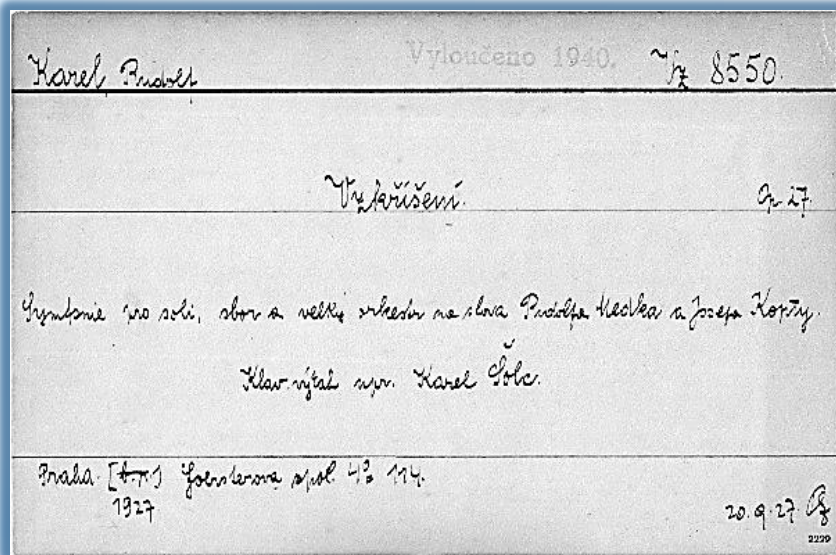 Karel Rudolf Vyloučeno 1940. Vz 8550.
Vzkříšení. Op. 27.
Symfonie pro soli, sbor a velký orkestr na slova Rudolfa Medka a Josefa Kopty.
Klav. výtah upr. Karel Šolc.
Praha. Foersterova spol. 4° 114.
1927 20.9.27
2229